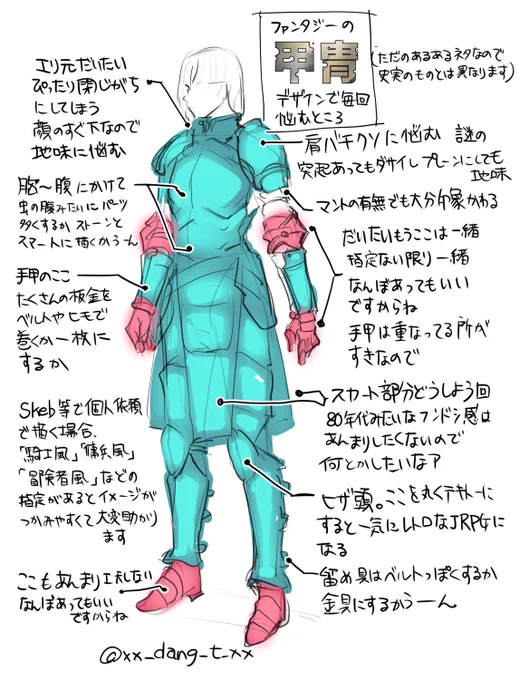 ファンタジーの
甲冑
デザインで毎回
悩むところ
(ただのあるあるネタなので
史実のものとは異なります)
エリ元だいたい
ぴったり閉じがち
にしてしまう
顔のすぐ下なので
地味に悩む
肩バチクソに悩む 謎の
突起あってもダサイしプレーンにしても
地味
マントの有無でも大分印象かわる
胸〜腹にかけて
虫の腹みたいにパーツ
多くするかストーンと
スマートに描くかうーん
だいたいもうここは一緒
指定ない限り一緒
なんぼあってもいい
ですからね
手甲は重なってる所が
すきなので
手甲のここ
たくさんの板金を
ベルトやヒモで
巻くか一枚に
するか
スカート部分どうしよう回
80年代みたいなフンドシ感は
あんまりしたくないので
何とかしたいなア
Skeb等で個人依頼
で描く場合、
「騎士風」「傭兵風」
「冒険者風」などの
指定があるとイメージが
つかみやすくて大変助かり
ます
ヒザ頭。ここを丸くテキトーに
すると一気にレトロなJRPGに
なる
留め具はベルトっぽくするか
金具にするかうーん
ここもあんまり工夫しない
なんぼあってもいい
ですからね
@xx_dang_t_xx